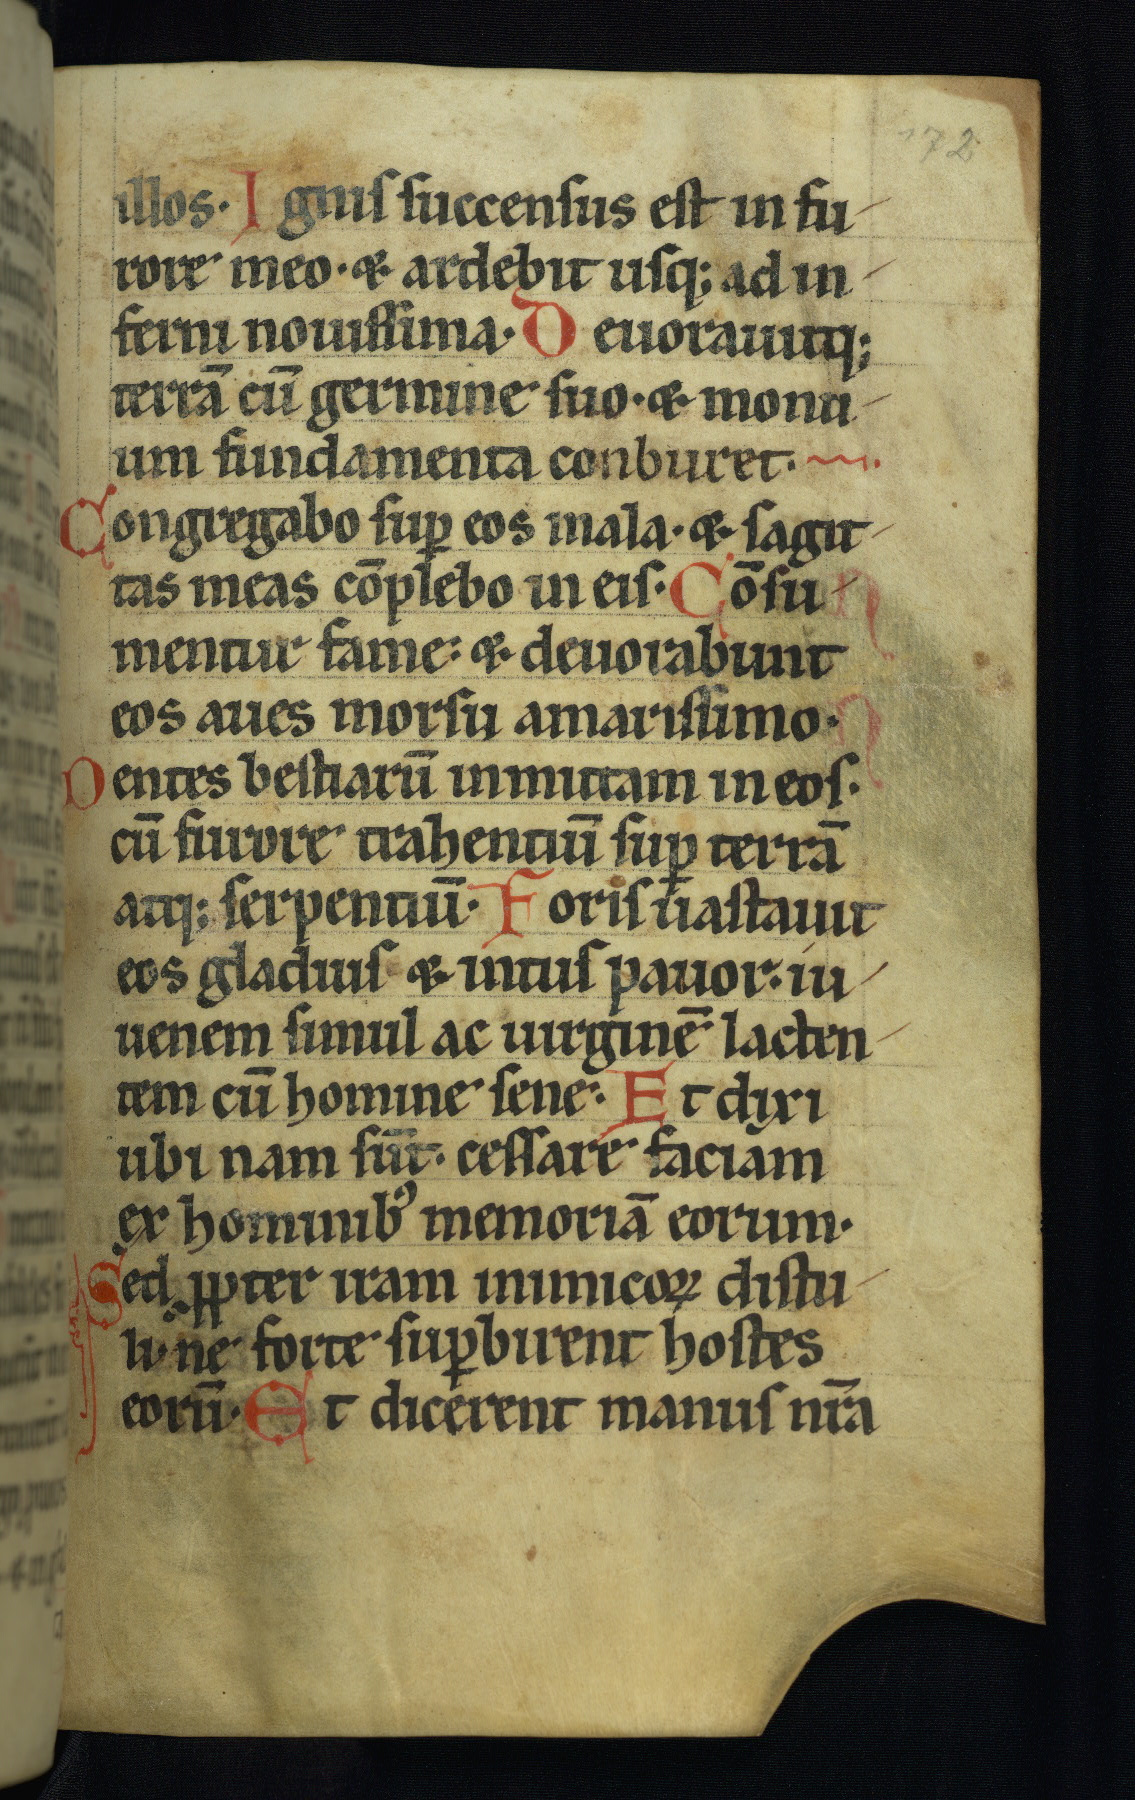 172
illos. Ignis succensus est in fu
rore meo. & ardebit usq; ad in
ferni nouissima. Deuorauitq;
terrā cū germine suo. & monti
um fundamenta conburet.
Congregabo suꝑ eos mala. & sagit
tas meas cōplebo in eis. Cōsu
mentur fame: & deuorabunt
eos aues morsu amarissimo.
Dentes bestiarū inmittam in eos.
cū furore trahentiū suꝑ terrā
atq; serpentiū. Foris uastauit
eos gladius & intus pauor. iu
uenem simul ac uirginē lacten
tem cū homine sene. Et dixi
ubi nam sūt. cessare faciam
ex hominibꝰ memoriā eorum.
Sed ꝓpter iram inimicoꝝ distu
li. ne forte suꝑbirent hostes
eorū. Et dicerent manus nr̄a